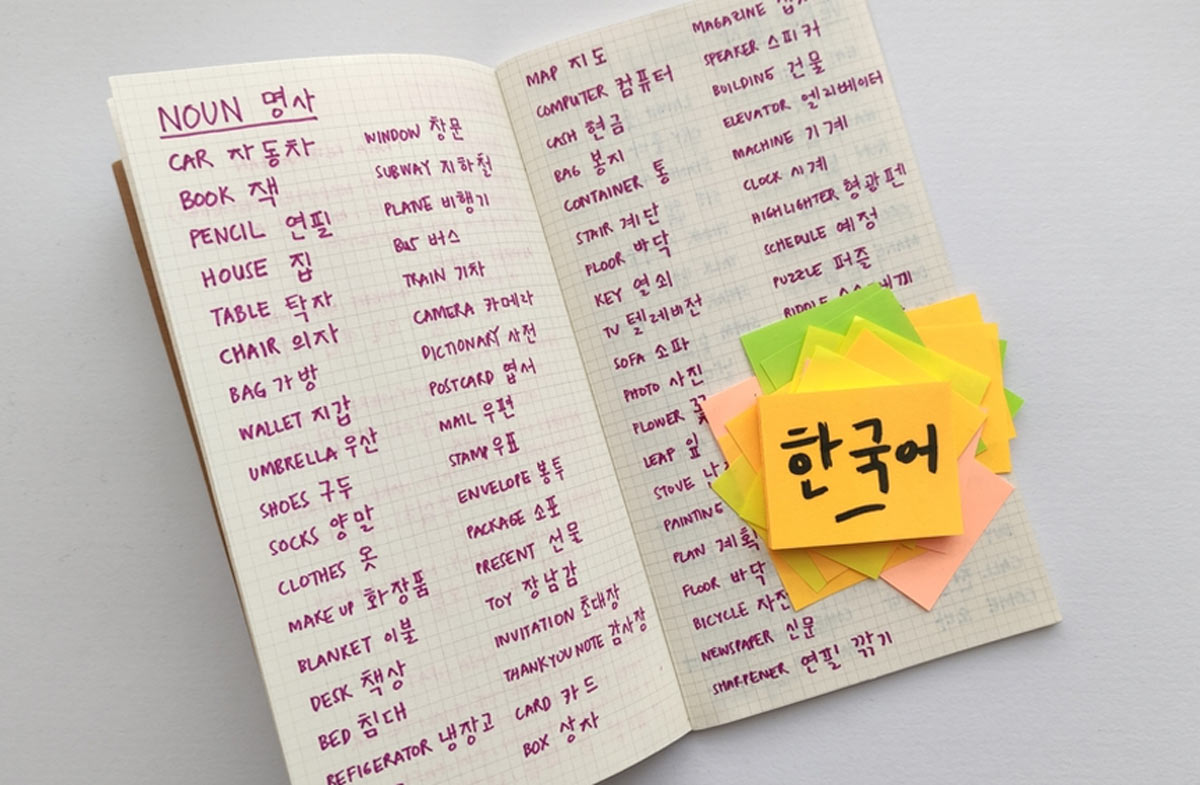 NOUN 명사
CAR 자동차
BOOK 책
PENCIL 연필
HOUSE 집
TABLE 탁자
CHAIR 의자
BAG 가방
WALLET 지갑
UMBRELLA 우산
SHOES 구두
SOCKS 양말
CLOTHES 옷
MAKE UP 화장품
BLANKET 이불
DESK 책상
BED 침대
REFIGERATOR 냉장고
WINDOW 창문
SUBWAY 지하철
PLANE 비행기
BUS 버스
TRAIN 기차
CAMERA 카메라
DICTIONARY 사전
POSTCARD 엽서
MAIL 우편
STAMP 우표
ENVELOPE 봉투
PACKAGE 소포
PRESENT 선물
TOY 장남감
INVITATION 초대장
THANKYOU NOTE 감사장
CARD 카드
BOX 상자
MAP 지도
COMPUTER 컴퓨터
CASH 현금
BAG 봉지
CONTAINER 통
STAIR 계단
FLOOR 바닥
KEY 열쇠
TV 텔레비전
SOFA 소파
PHOTO 사진
FLOWER
LEAP 잎
STOVE
PAINTING
PLAN 계획
FLOOR 바닥
BICYCLE 자전
NEWSPAPER 신문
SHARPENER 연필 깎기
MAGAZINE
SPEAKER 스피커
BUILDING 건물
ELEVATOR 엘리베이터
MACHINE 기계
CLOCK 시계
HIGHLIGHTER 형광펜
SCHEDULE 예정
PUZZLE 퍼즐
RIDDLE
한국어